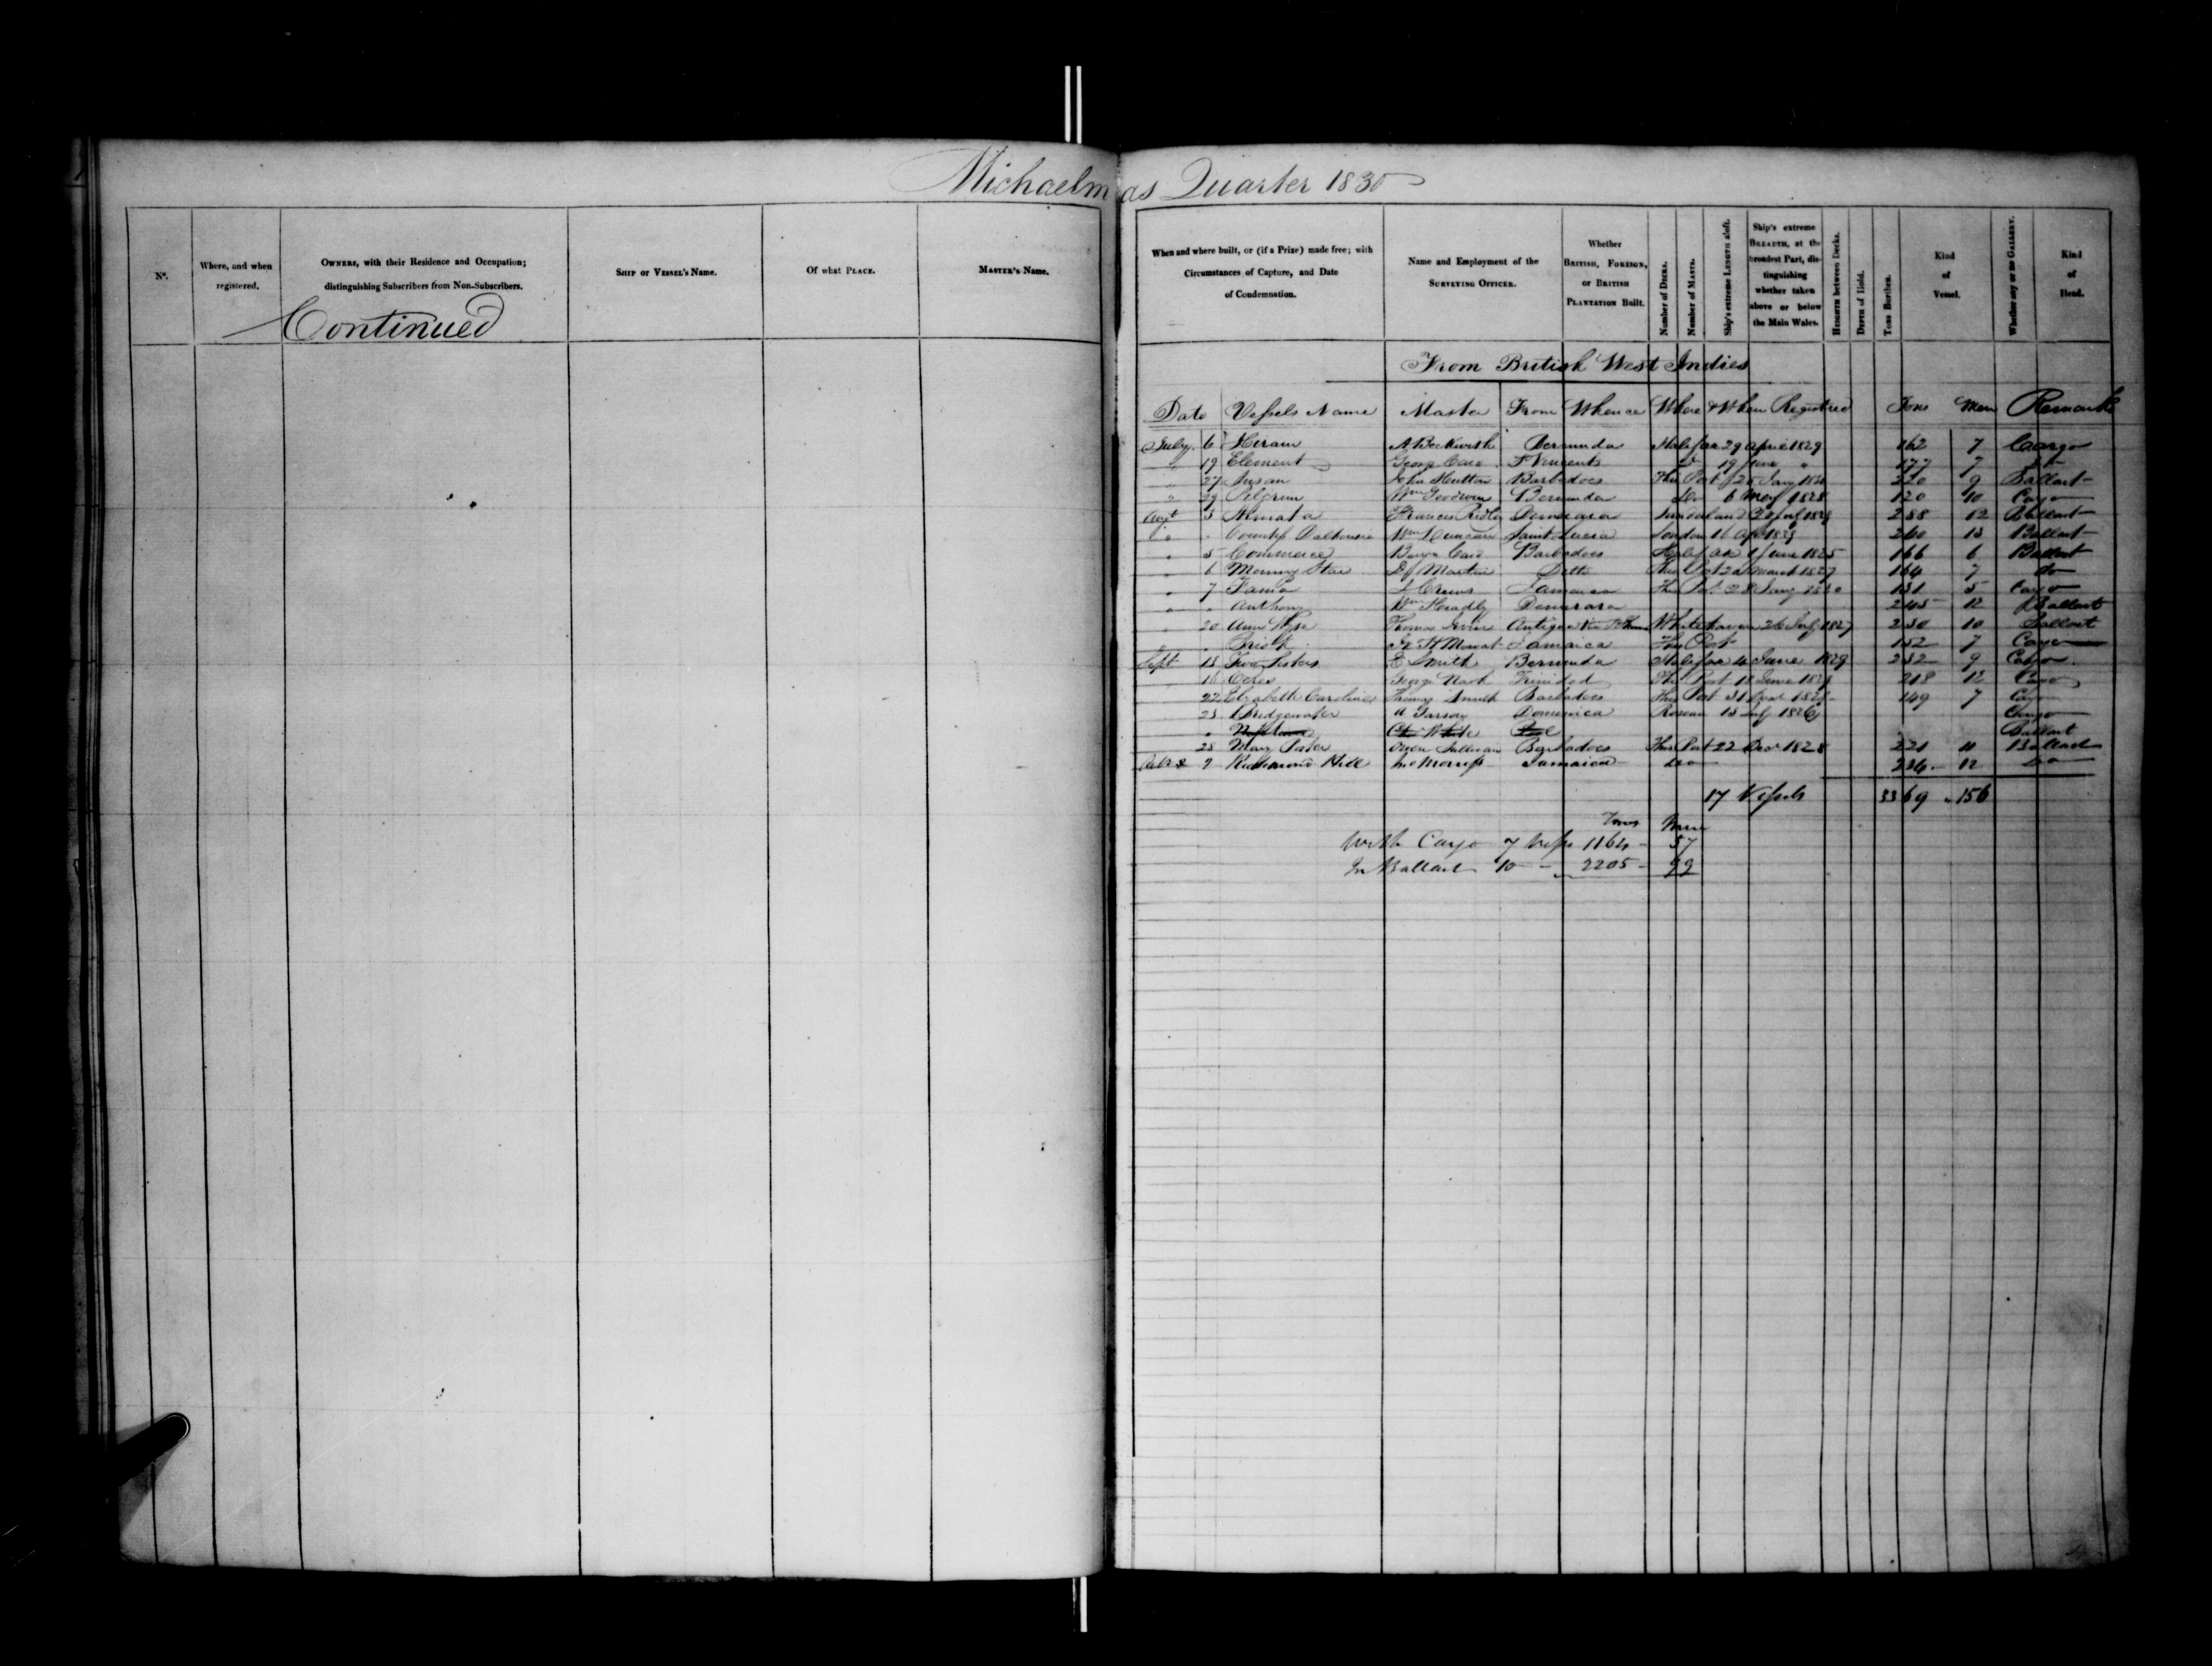 Michaelmas Quarter 1830
No. Where, and when registered. Owners, with their Residence and Occupation; distinguishing Subscribers from Non-Subscribers. Ship or Vessel's Name. Of what Place. Master's Name.
Continued
When and where built, or (if a Prize) made free; with Circumstances of Capture, and Date of Condemnation. Name and Employment of the Surveying Officer. Whether British, Foreign, or British Plantation Built. Number of Decks. Number of Masts. Ship's extreme Length aloft. Ship's extreme Breadth, at the broadest Part, distinguishing whether taken above or below the Main Wales. Height between Decks. Depth of Hold. Tons Burthen. Kind of Vessel. Whether any or no Gallery. Kind of Head.
From British West Indies
Date Vessels Name Master From Whence Where & When Registred Tons Men Remarks
July 6 Hiram A Beckwith Bermuda Halifax 29 April 1829 162 7 Cargo
" 19 Element George St Vincents 19 June " 177 7 do
" 27 Susan John Hutton Barbadoes This Port 25 Jany 1830 220 9 Ballast
" 29 Pilgrim Wm Goodwin Bermuda do 6 May 1828 120 10 Cargo
Augt 3 Francis Ridley Demerara Sunderland July 1829 288 12 Ballast
" " Countess Dalhousie Wm Duncan Saint Lucia London 16 Apl 1829 260 13 Ballast
" 5 Commerce Benjn Barbadoes Halifax 1 June 1825 166 6 Ballast
" 6 Morning Star Martin Ditto This Port March 1827 164 7 do
" 7 Jamaica This Port 28 Jany 1830 131 5 Cargo
" " Anthony Wm Headly Demerara 245 12 Ballast
" 20 Thomas Antigua Whitehaven 26 July 1827 230 10 Ballast
" " Mowat Jamaica This Port 152 7 Cargo
Sept 13 Two Sisters E Smith Bermuda Halifax 4 June 1829 232 9 Cargo
16 George Trinidad This Port 18 June 1829 218 12
22 Elizabeth Caroline Thomas Smith Barbadoes This Port 31 1828 149 7 Cargo
23 Bridgewater Dominica Roseau 13 July 1826 Cargo
" White Ballast
28 Mary Porter Owen Sullivan Barbadoes This Port 22 Decr 1828 221 11 Ballast
9 Richmond Hill Jno Jamaica do 234 12 do
17 Vessels 3369 " 156
Tons Men
With Cargo 7 1164 - 57
In Ballast 10 - 2205 - 99